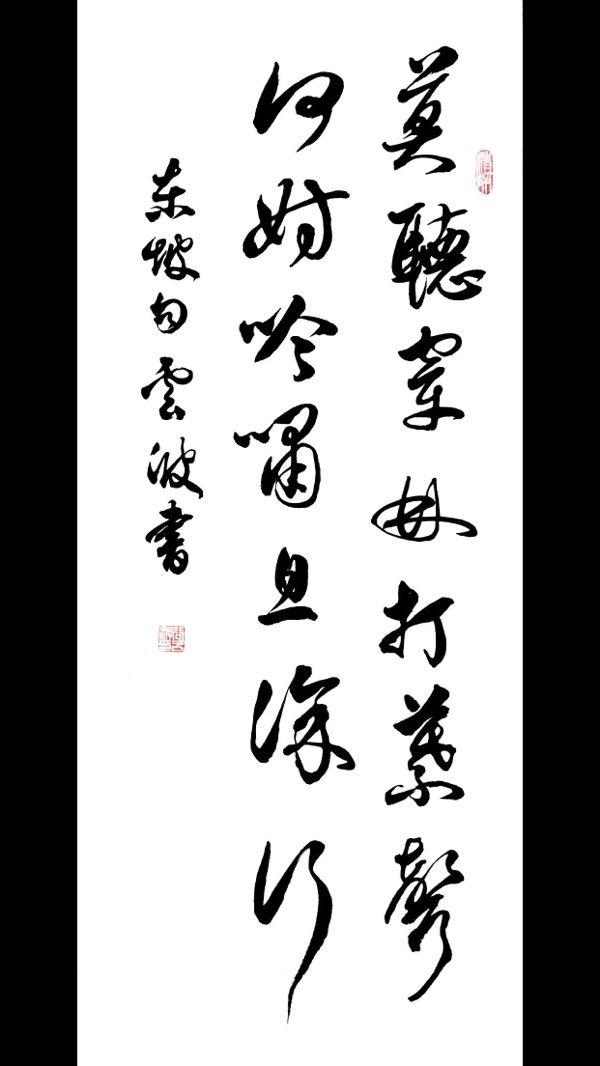 莫聽穿林打葉聲
何妨吟嘯且徐行
東坡句雲波書